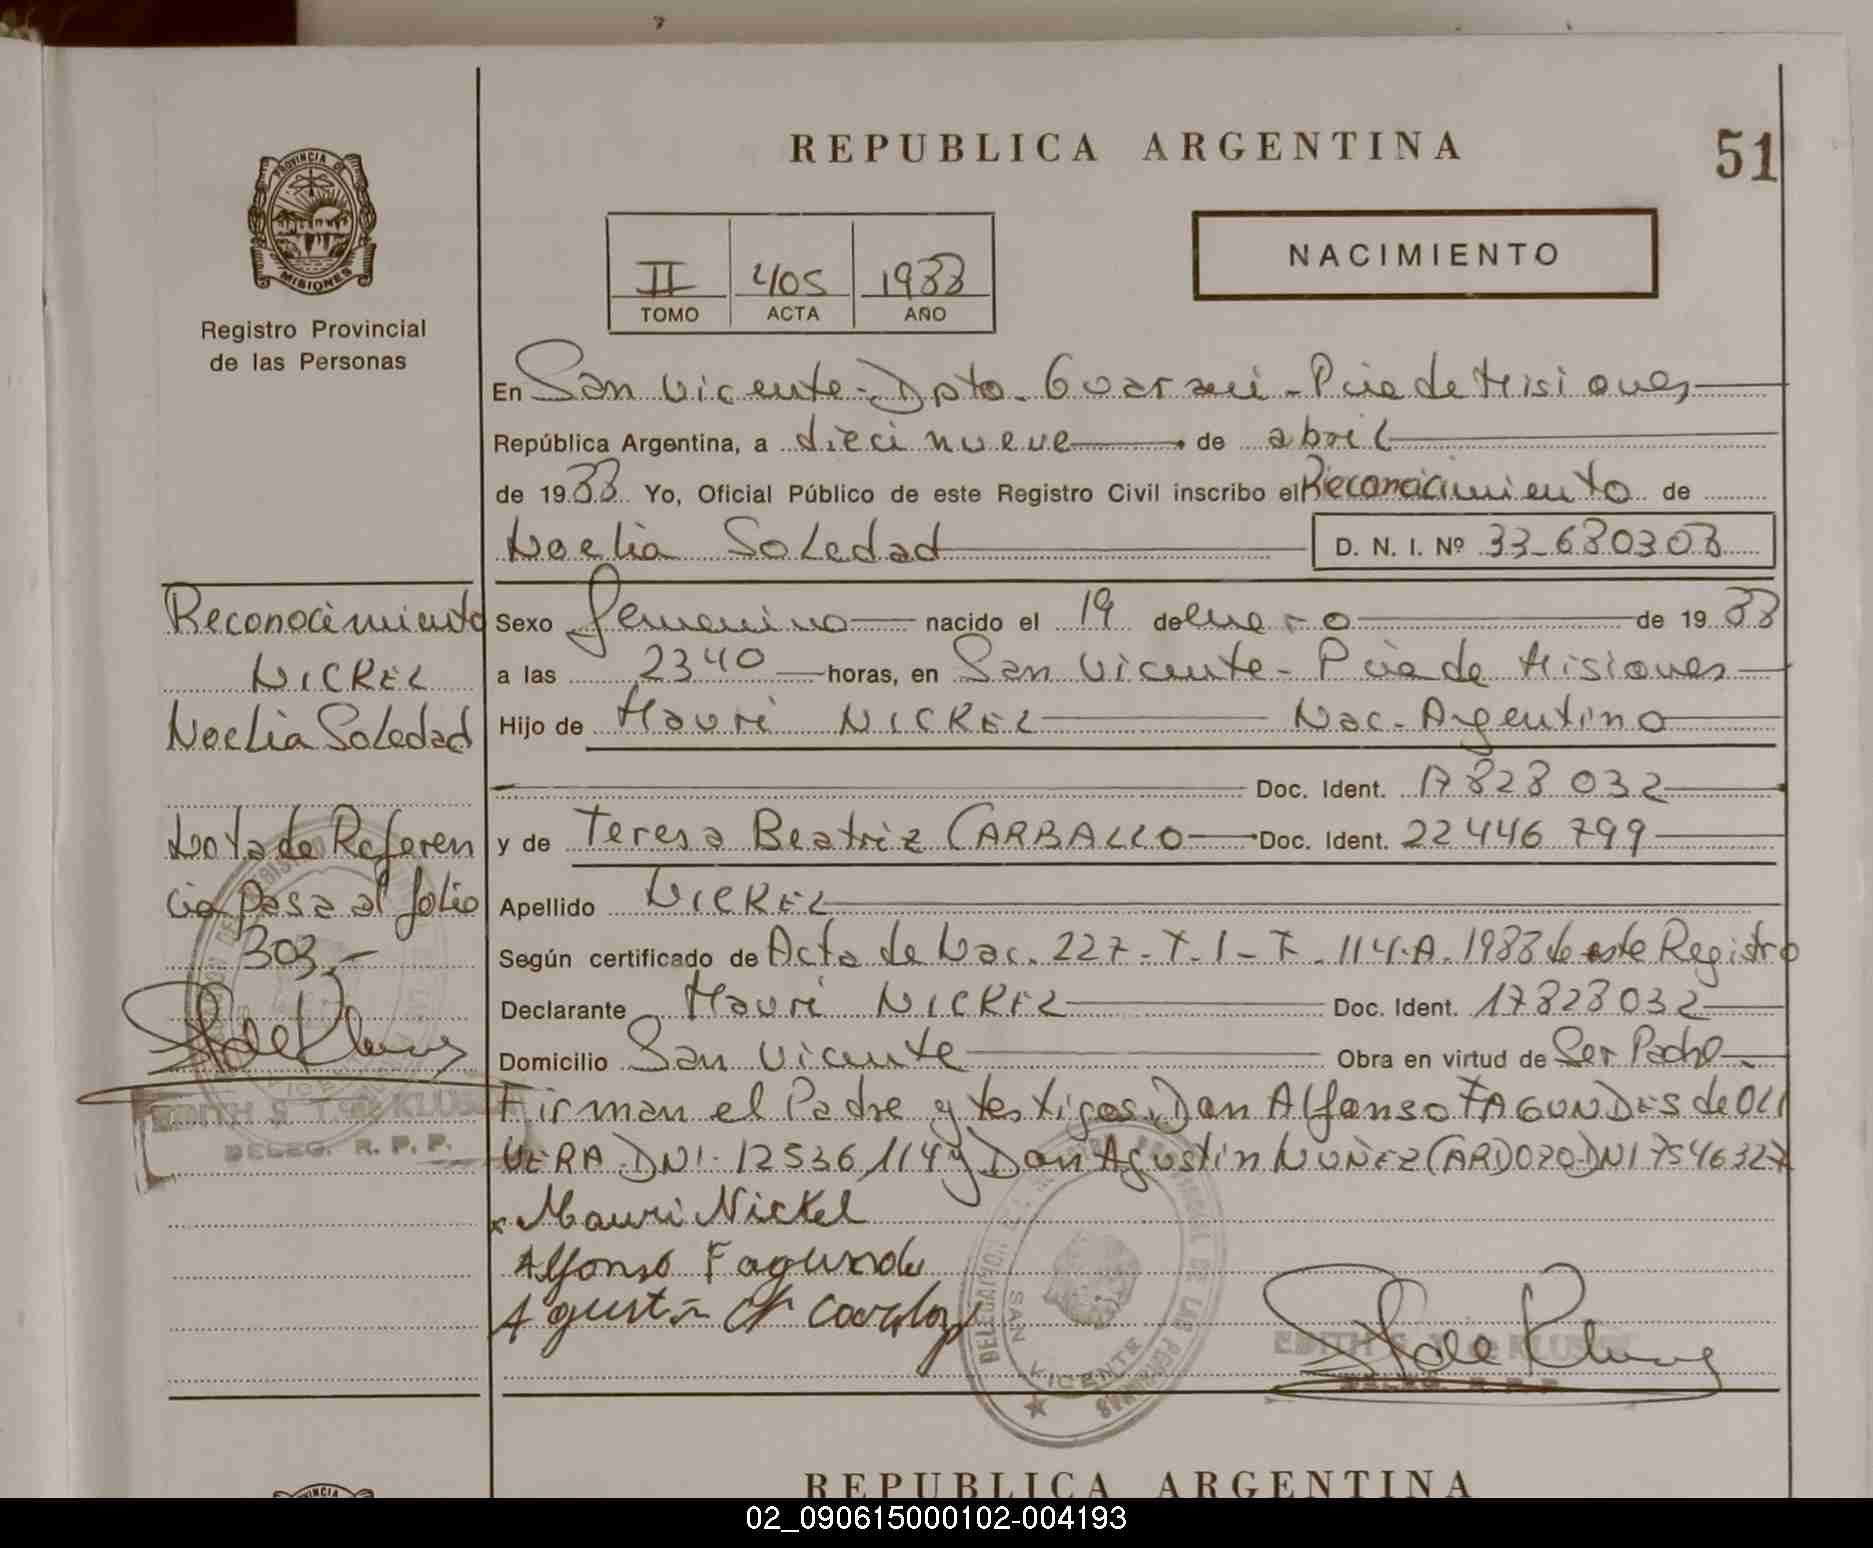 REPUBLICA ARGENTINA
51
PROVINCIA DE
MISIONES
Registro Provincial
de las Personas
II 405 1988
TOMO ACTA AÑO
NACIMIENTO
En San Vicente - Dpto. Guarani - Pcia de Misiones
República Argentina, a diecinueve de abril
de 1988 Yo, Oficial Público de este Registro Civil inscribo el Reconocimiento de
Noelia Soledad D. N. I. Nº 33-680308
Reconocimiento
NICKEL
Noelia Soledad
Nota de Referen
cia pasa al folio
303.-
EDITH S. T. de KLUS
DELEG. R. P. P.
Sexo femenino nacido el 19 de enero de 1988
a las 2340 horas, en San Vicente - Pcia de Misiones
Hijo de Mauri NICKEL Nac. Argentino
Doc. Ident. 17828032
y de Teresa Beatriz CARBALLO Doc. Ident. 22446799
Apellido NICKEL
Según certificado de Acta de Nac. 227-T.I-F.114.A.1988 de este Registro
Declarante Mauri NICKEL Doc. Ident. 17828032
Domicilio San Vicente Obra en virtud de Ser Padre.
Firman el Padre y testigos. Don Alfonso FAGUNDES de OLI
VERA. DNI. 12536114 y Don Agustín NUÑEZ CARDOZO-DNI 7546327
x Mauri Nickel
Alfonso Fagunde
Agustin Cardozo
DELEGACION DEL REGISTRO PROVINCIAL DE LAS PERSONAS
SAN VICENTE
EDITH S. T. de KLUS
DELEG. R. P. P.
REPUBLICA ARGENTINA
02_090615000102-004193